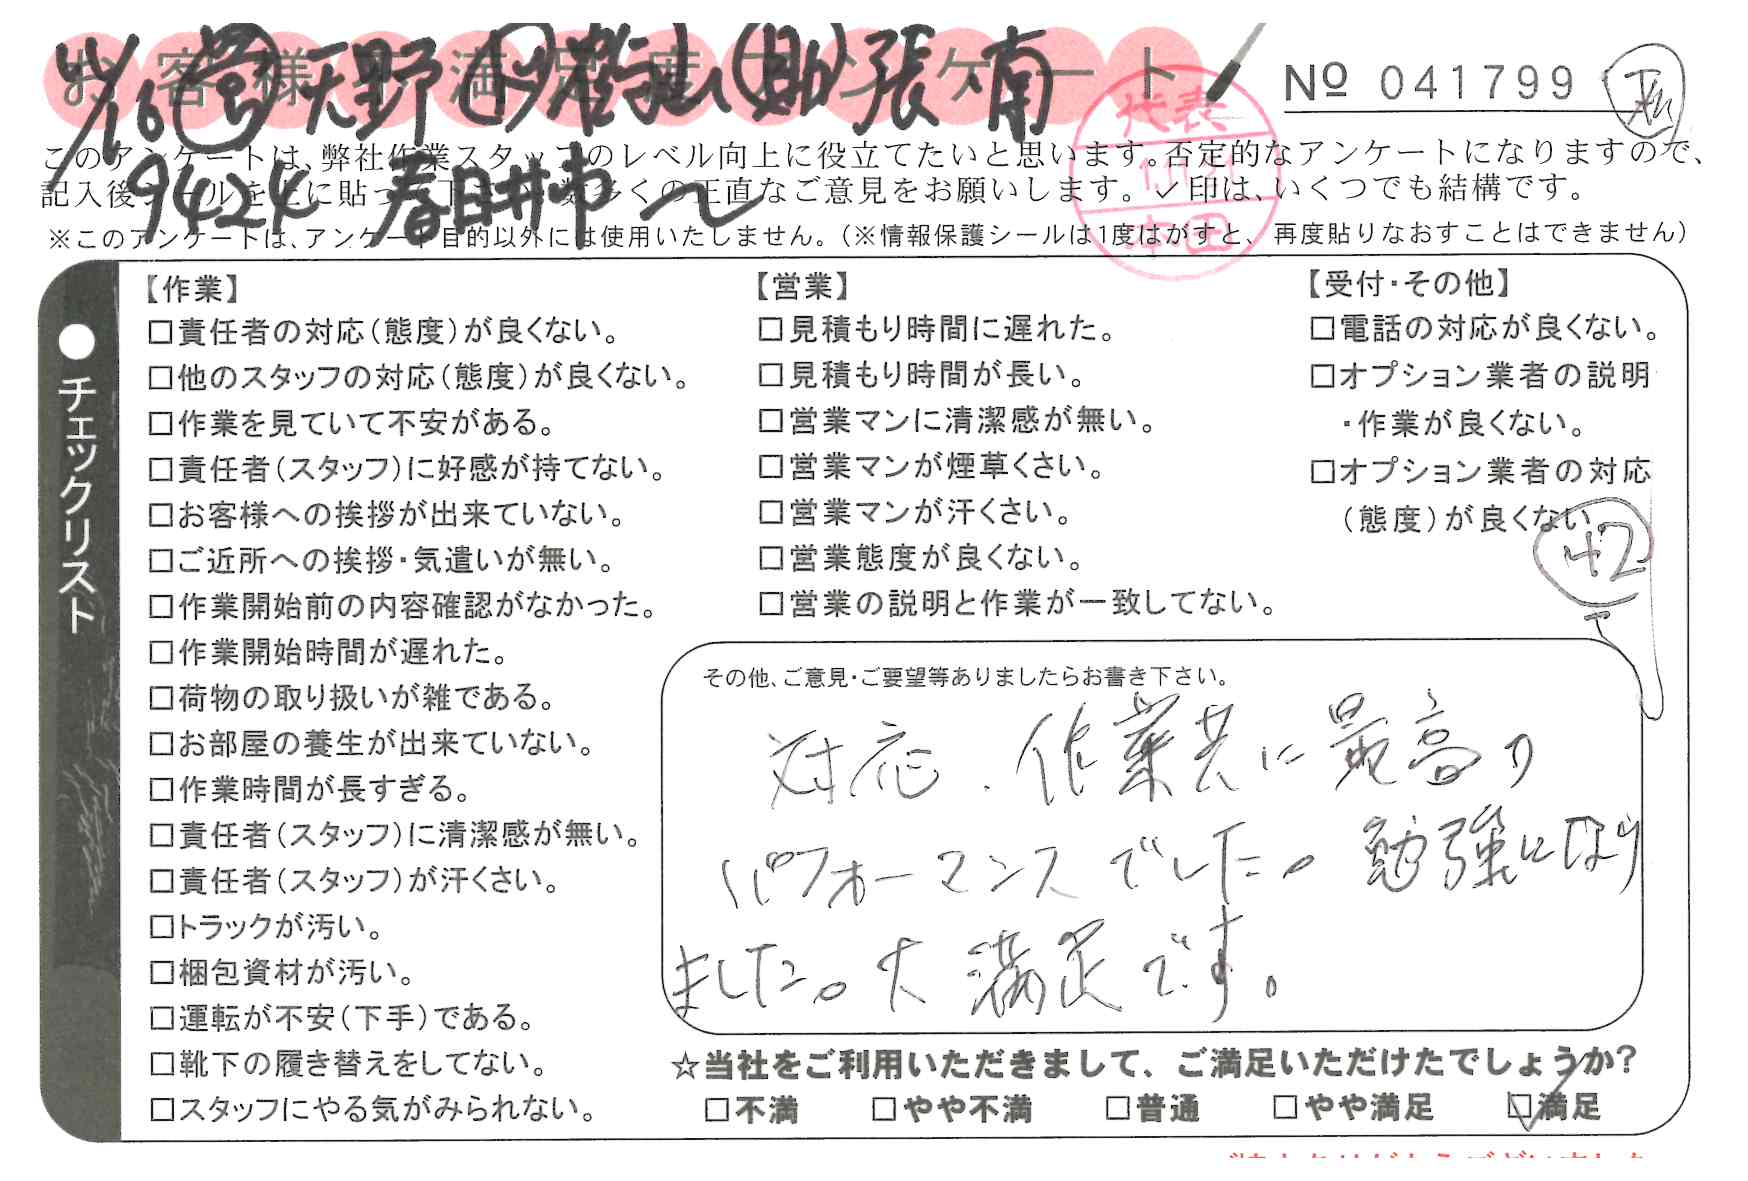 お客様不満足度アンケート
11/16 営 天野 助 張 南
№ 041799
代表
このアンケートは、弊社作業スタッフのレベル向上に役立てたいと思います。否定的なアンケートになりますので、
記入後シールを上に貼って下さい。数多くの正直なご意見をお願いします。✓印は、いくつでも結構です。
19424 春日井市
※このアンケートは、アンケート目的以外には使用いたしません。(※情報保護シールは1度はがすと、再度貼りなおすことはできません)
本田
●チェックリスト
【作業】
□責任者の対応(態度)が良くない。
□他のスタッフの対応(態度)が良くない。
□作業を見ていて不安がある。
□責任者(スタッフ)に好感が持てない。
□お客様への挨拶が出来ていない。
□ご近所への挨拶・気遣いが無い。
□作業開始前の内容確認がなかった。
□作業開始時間が遅れた。
□荷物の取り扱いが雑である。
□お部屋の養生が出来ていない。
□作業時間が長すぎる。
□責任者(スタッフ)に清潔感が無い。
□責任者(スタッフ)が汗くさい。
□トラックが汚い。
□梱包資材が汚い。
□運転が不安(下手)である。
□靴下の履き替えをしてない。
□スタッフにやる気がみられない。
【営業】
□見積もり時間に遅れた。
□見積もり時間が長い。
□営業マンに清潔感が無い。
□営業マンが煙草くさい。
□営業マンが汗くさい。
□営業態度が良くない。
□営業の説明と作業が一致してない。
【受付・その他】
□電話の対応が良くない。
□オプション業者の説明
・作業が良くない。
□オプション業者の対応
(態度)が良くない。
42
その他、ご意見・ご要望等ありましたらお書き下さい。
対応、作業共に最高の
パフォーマンスでした。勉強になり
ました。大満足です。
☆当社をご利用いただきまして、ご満足いただけたでしょうか?
□不満 □やや不満 □普通 □やや満足 ☑満足